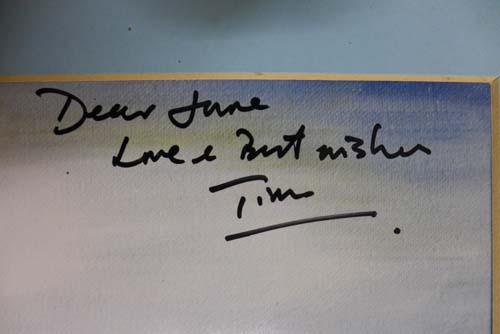 Dear Jane
Love & Best wishes
Tim.